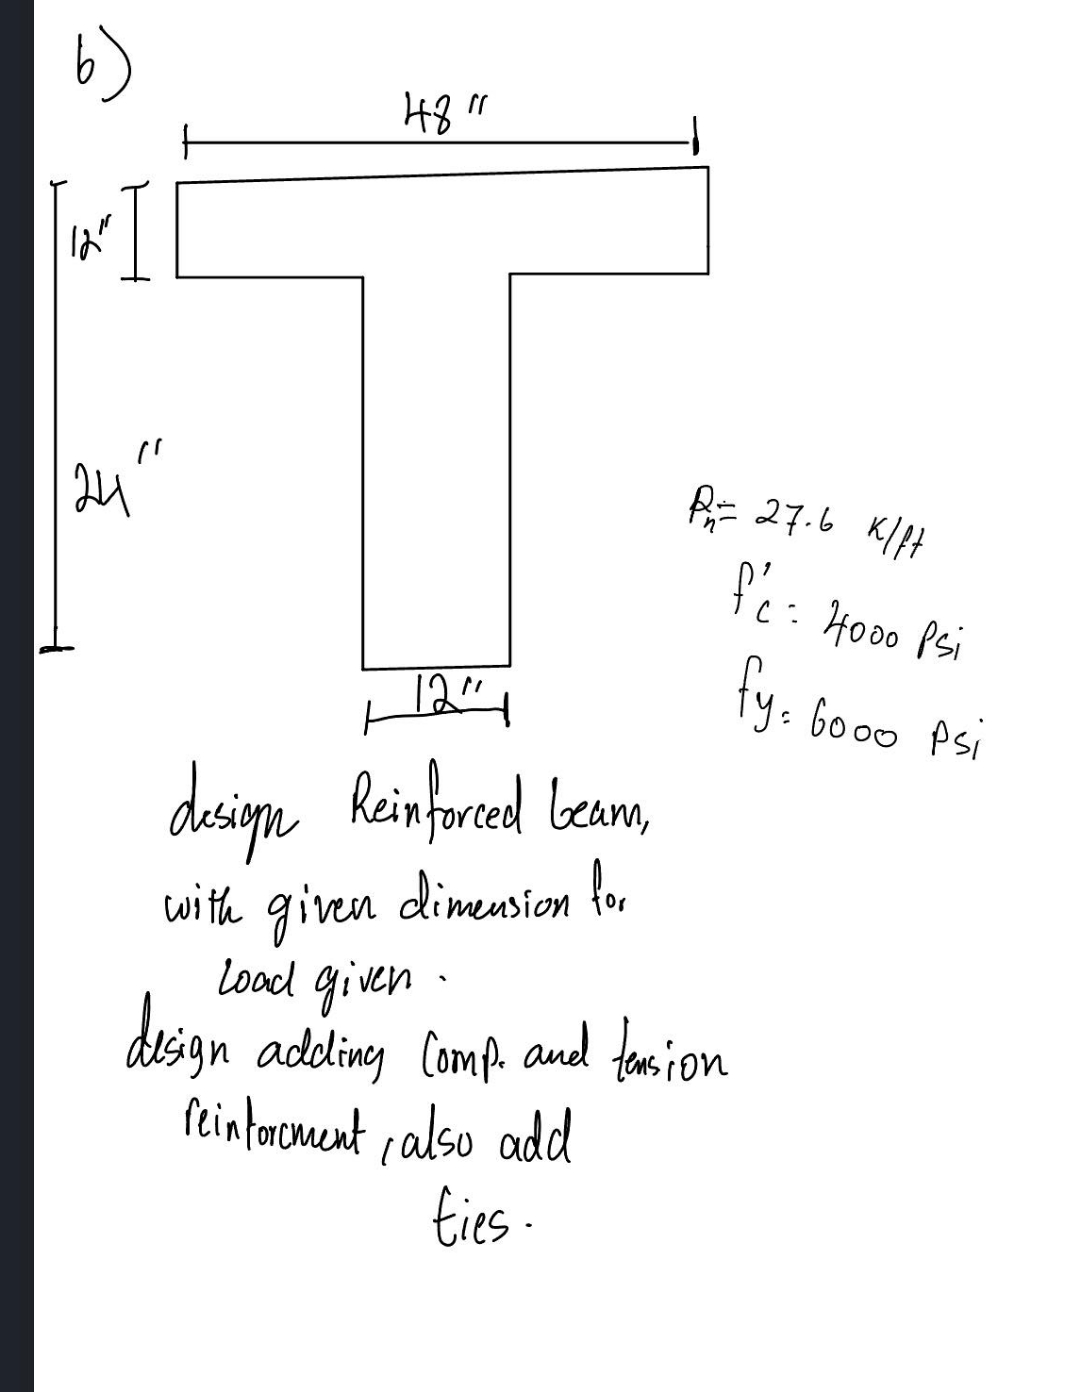 b)
48"
12"
24"
Pn = 27.6 K/ft
f'c = 4000 Psi
fy = 6000 Psi
12"
design Reinforced beam,
with given dimension for
Load given.
design adding Comp. and tension
reinforcment, also add
ties.